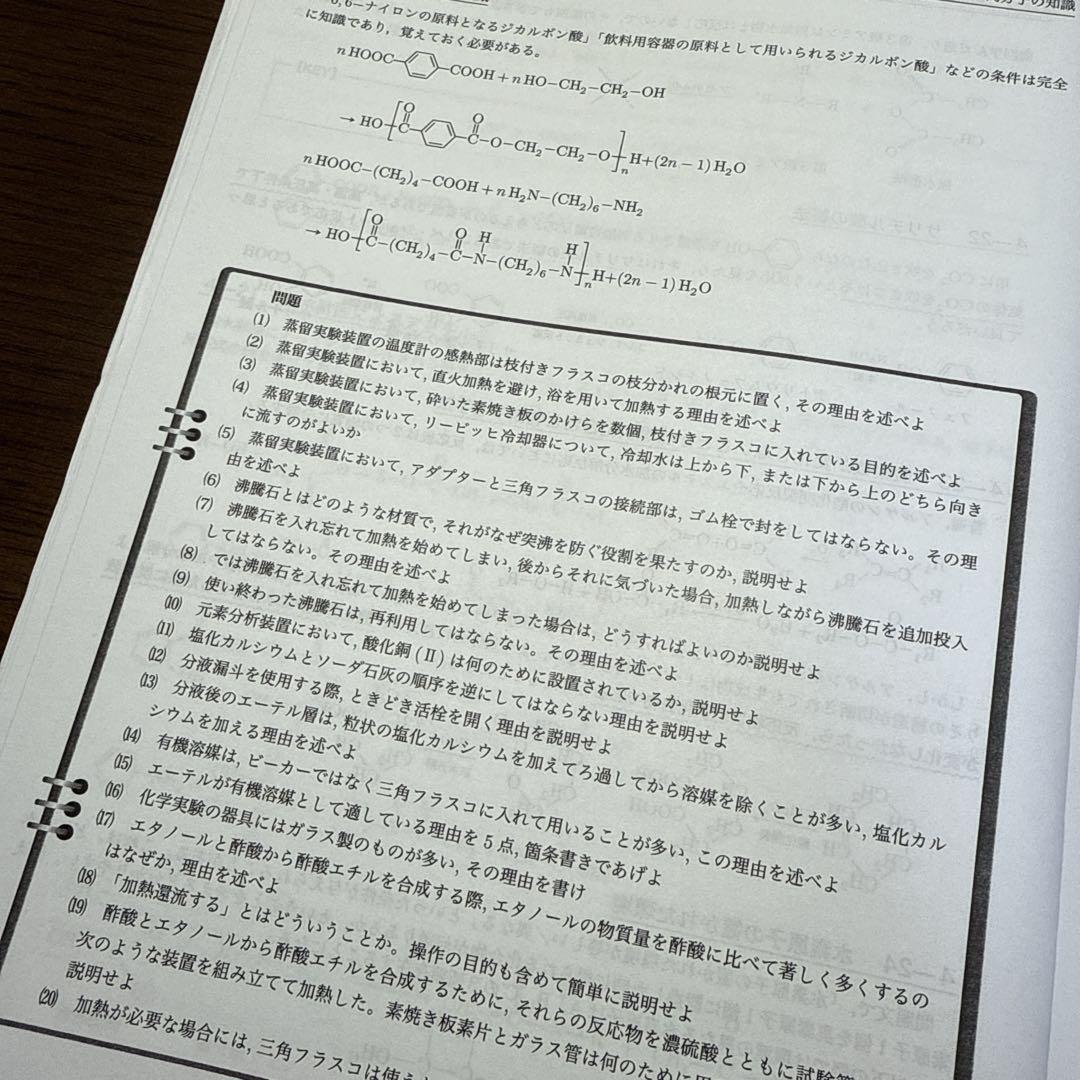 6,6−ナイロンの原料となるジカルボン酸」「飲料用容器の原料として用いられるジカルボン酸」などの条件は完全
に知識であり，覚えておく必要がある。
n HOOC−COOH + n HO−CH₂−CH₂−OH
→ HO[C(O)−C(O)−O−CH₂−CH₂−O]ₙH+(2n − 1) H₂O
n HOOC−(CH₂)₄−COOH + n H₂N−(CH₂)₆−NH₂
→ HO[C(O)−(CH₂)₄−C(O)−N(H)−(CH₂)₆−N(H)]ₙH+(2n − 1) H₂O
問題
(1) 蒸留実験装置の温度計の感熱部は枝付きフラスコの枝分かれの根元に置く，その理由を述べよ
(2) 蒸留実験装置において，直火加熱を避け，浴を用いて加熱する理由を述べよ
(3) 蒸留実験装置において，砕いた素焼き板のかけらを数個，枝付きフラスコに入れている目的を述べよ
(4) 蒸留実験装置において，リービッヒ冷却器について，冷却水は上から下，または下から上のどちら向き
に流すのがよいか
(5) 蒸留実験装置において，アダプターと三角フラスコの接続部は，ゴム栓で封をしてはならない。その理
由を述べよ
(6) 沸騰石とはどのような材質で，それがなぜ突沸を防ぐ役割を果たすのか，説明せよ
(7) 沸騰石を入れ忘れて加熱を始めてしまい，後からそれに気づいた場合，加熱しながら沸騰石を追加投入
してはならない。その理由を述べよ
(8) では沸騰石を入れ忘れて加熱を始めてしまった場合は，どうすればよいのか説明せよ
(9) 使い終わった沸騰石は，再利用してはならない。その理由を述べよ
(10) 元素分析装置において，酸化銅(II)は何のために設置されているか，説明せよ
(11) 塩化カルシウムとソーダ石灰の順序を逆にしてはならない理由を説明せよ
(12) 分液漏斗を使用する際，ときどき活栓を開く理由を説明せよ
(13) 分液後のエーテル層は，粒状の塩化カルシウムを加えてろ過してから溶媒を除くことが多い，塩化カル
シウムを加える理由を述べよ
(14) 有機溶媒は，ビーカーではなく三角フラスコに入れて用いることが多い，この理由を述べよ
(15) エーテルが有機溶媒として適している理由を5点，箇条書きであげよ
(16) 化学実験の器具にはガラス製のものが多い，その理由を書け
(17) エタノールと酢酸から酢酸エチルを合成する際，エタノールの物質量を酢酸に比べて著しく多くするの
はなぜか，理由を述べよ
(18) 「加熱還流する」とはどういうことか。操作の目的も含めて簡単に説明せよ
(19) 酢酸とエタノールから酢酸エチルを合成するために，それらの反応物を濃硫酸とともに試験管
次のような装置を組み立てて加熱した。素焼き板素片とガラス管は何のために
説明せよ
(20) 加熱が必要な場合には，三角フラスコは使